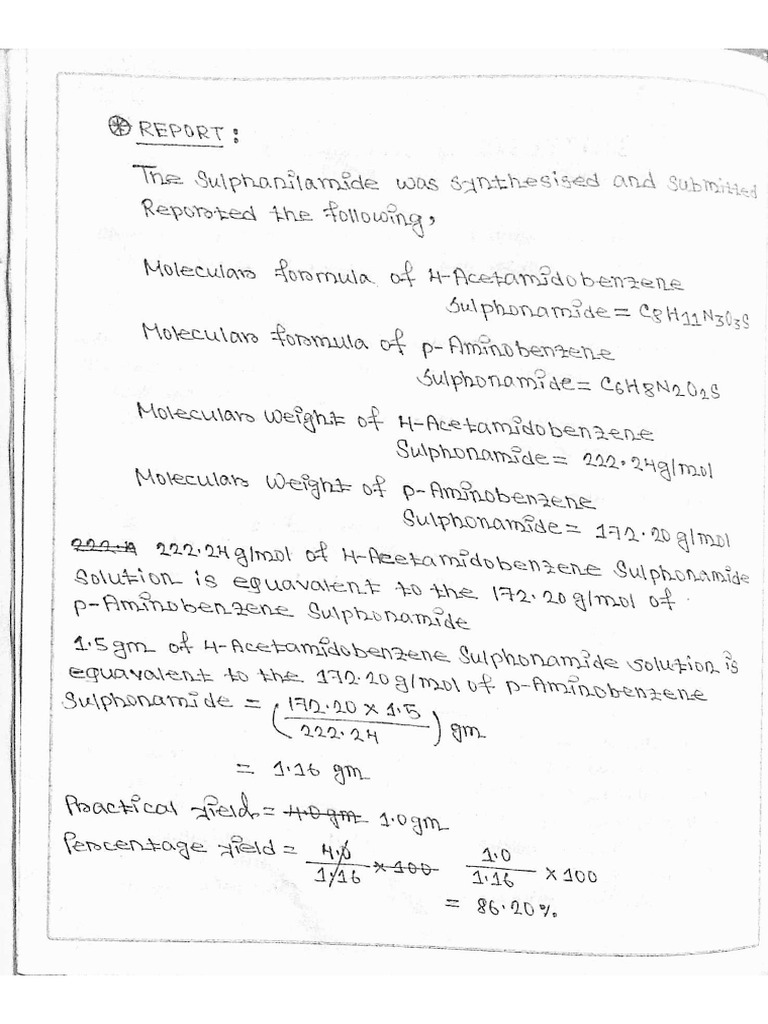 ⊛ REPORT :
The Sulphanilamide was synthesised and submitted
Reported the following,
Molecular formula of 4-Acetamidobenzene
Sulphonamide = C8H11N3O3S
Molecular formula of p-Aminobenzene
Sulphonamide = C6H8N2O2S
Molecular Weight of 4-Acetamidobenzene
Sulphonamide = 222.24g/mol
Molecular Weight of p-Aminobenzene
Sulphonamide = 172.20 g/mol
222.4 222.24g/mol of 4-Acetamidobenzene Sulphonamide
Solution is equavalent to the 172.20g/mol of
p-Aminobenzene Sulphonamide
1.5gm of 4-Acetamidobenzene Sulphonamide solution is
equavalent to the 172.20g/mol of p-Aminobenzene
Sulphonamide = (172.20 x 1.5 / 222.24) gm
= 1.16 gm
Practical yield = 4.0gm 1.0gm
Percentage yield = 4.0/1.16 x 100 1.0/1.16 x 100
= 86.20%